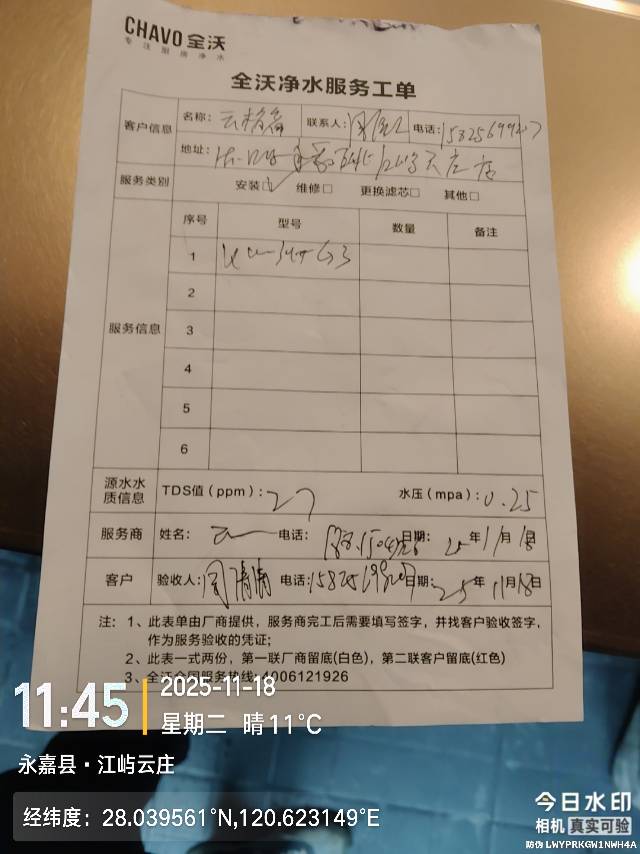 CHAVO 全沃
专注厨房净水
全沃净水服务工单
客户信息 名称： 联系人： 电话：
地址：
服务类别 安装☑ 维修□ 更换滤芯□ 其他□
服务信息 序号 型号 数量 备注
1
2
3
4
5
6
源水水质信息 TDS值（ppm）：27 水压（mpa）：0.25
服务商 姓名： 电话： 日期：25年11月18日
客户 验收人：周清清 电话： 日期：25年11月18日
注：1、此表单由厂商提供，服务商完工后需要填写签字，并找客户验收签字，
作为服务验收的凭证；
2、此表一式两份，第一联厂商留底(白色)，第二联客户留底(红色)
3、全沃全国服务热线：4006121926
11:45 2025-11-18
星期二 晴 11°C
永嘉县·江屿云庄
经纬度：28.039561°N,120.623149°E
今日水印
相机 真实可验
防伪 LWYPRKGW1NWH4A